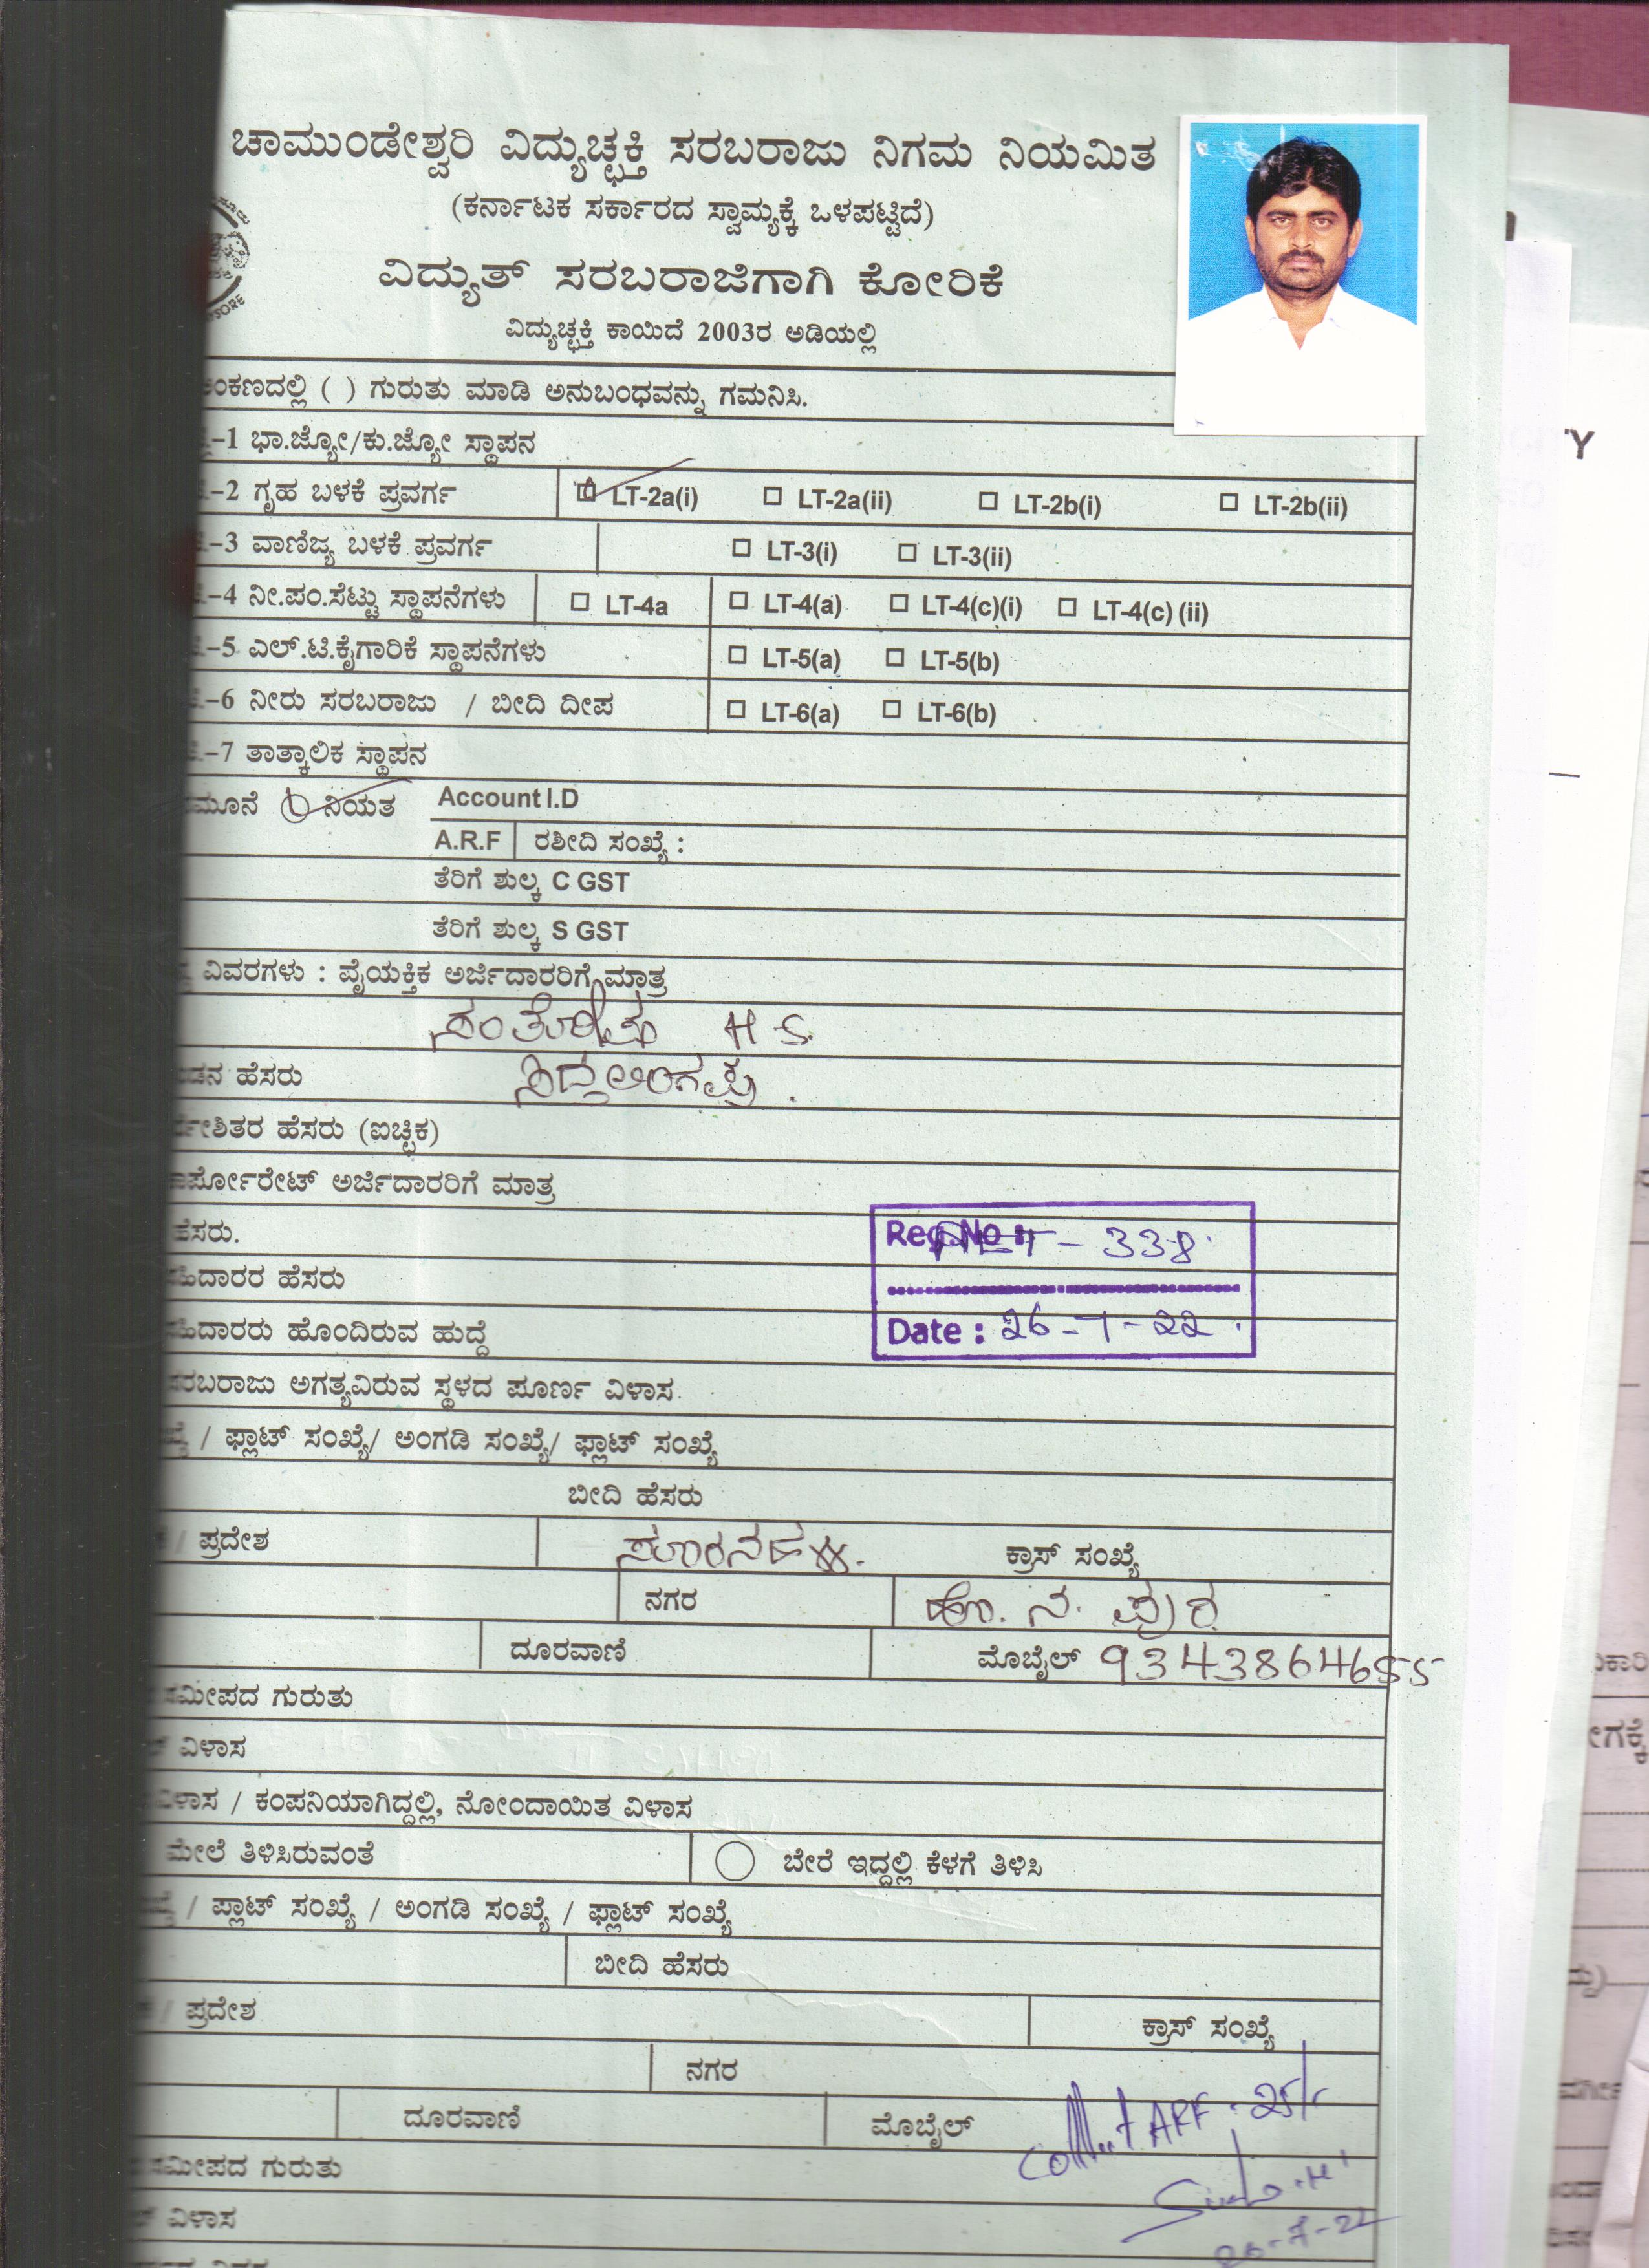 ಚಾಮುಂಡೇಶ್ವರಿ ವಿದ್ಯುಚ್ಛಕ್ತಿ ಸರಬರಾಜು ನಿಗಮ ನಿಯಮಿತ
(ಕರ್ನಾಟಕ ಸರ್ಕಾರದ ಸ್ವಾಮ್ಯಕ್ಕೆ ಒಳಪಟ್ಟಿದೆ)
ವಿದ್ಯುತ್ ಸರಬರಾಜಿಗಾಗಿ ಕೋರಿಕೆ
ವಿದ್ಯುಚ್ಛಕ್ತಿ ಕಾಯಿದೆ 2003ರ ಅಡಿಯಲ್ಲಿ
ಅಂಕಣದಲ್ಲಿ ( ) ಗುರುತು ಮಾಡಿ ಅನುಬಂಧವನ್ನು ಗಮನಿಸಿ.
-1 ಭಾ.ಜ್ಯೋ/ಕು.ಜ್ಯೋ ಸ್ಥಾಪನ
-2 ಗೃಹ ಬಳಕೆ ಪ್ರವರ್ಗ LT-2a(i) LT-2a(ii) LT-2b(i) LT-2b(ii)
-3 ವಾಣಿಜ್ಯ ಬಳಕೆ ಪ್ರವರ್ಗ LT-3(i) LT-3(ii)
-4 ನೀ.ಪಂ.ಸೆಟ್ಟು ಸ್ಥಾಪನೆಗಳು LT-4a LT-4(a) LT-4(c)(i) LT-4(c) (ii)
-5 ಎಲ್.ಟಿ.ಕೈಗಾರಿಕೆ ಸ್ಥಾಪನೆಗಳು LT-5(a) LT-5(b)
-6 ನೀರು ಸರಬರಾಜು / ಬೀದಿ ದೀಪ LT-6(a) LT-6(b)
-7 ತಾತ್ಕಾಲಿಕ ಸ್ಥಾಪನ
ನಿಯತ Account I.D
A.R.F ರಶೀದಿ ಸಂಖ್ಯೆ :
ತೆರಿಗೆ ಶುಲ್ಕ C GST
ತೆರಿಗೆ ಶುಲ್ಕ S GST
ವಿವರಗಳು : ವೈಯಕ್ತಿಕ ಅರ್ಜಿದಾರರಿಗೆ ಮಾತ್ರ
ಸಂತೋಷ H S.
ಹೆಸರು ಸಿದ್ದಲಿಂಗಪ್ಪ .
ಹೆಸರು (ಐಚ್ಛಿಕ)
ಅರ್ಜಿದಾರರಿಗೆ ಮಾತ್ರ
ಹೆಸರು. Reg.No : - 338
ಹೆಸರು
ಹೊಂದಿರುವ ಹುದ್ದೆ Date : 26-7-22
ಸರಬರಾಜು ಅಗತ್ಯವಿರುವ ಸ್ಥಳದ ಪೂರ್ಣ ವಿಳಾಸ
/ ಫ್ಲಾಟ್ ಸಂಖ್ಯೆ/ ಅಂಗಡಿ ಸಂಖ್ಯೆ/ ಫ್ಲಾಟ್ ಸಂಖ್ಯೆ
ಬೀದಿ ಹೆಸರು
/ ಪ್ರದೇಶ ಕ್ರಾಸ್ ಸಂಖ್ಯೆ
ನಗರ ಹೊ. ನ. ಪುರ
ದೂರವಾಣಿ ಮೊಬೈಲ್
ಸಮೀಪದ ಗುರುತು
ವಿಳಾಸ
ವಿಳಾಸ / ಕಂಪನಿಯಾಗಿದ್ದಲ್ಲಿ, ನೋಂದಾಯಿತ ವಿಳಾಸ
ಮೇಲೆ ತಿಳಿಸಿರುವಂತೆ ಬೇರೆ ಇದ್ದಲ್ಲಿ ಕೆಳಗೆ ತಿಳಿಸಿ
/ ಪ್ಲಾಟ್ ಸಂಖ್ಯೆ / ಅಂಗಡಿ ಸಂಖ್ಯೆ / ಫ್ಲಾಟ್ ಸಂಖ್ಯೆ
ಬೀದಿ ಹೆಸರು
/ ಪ್ರದೇಶ ಕ್ರಾಸ್ ಸಂಖ್ಯೆ
ನಗರ
ದೂರವಾಣಿ ಮೊಬೈಲ್ Collect ARF - 25/-
ಸಮೀಪದ ಗುರುತು
ವಿಳಾಸ 26-7-22